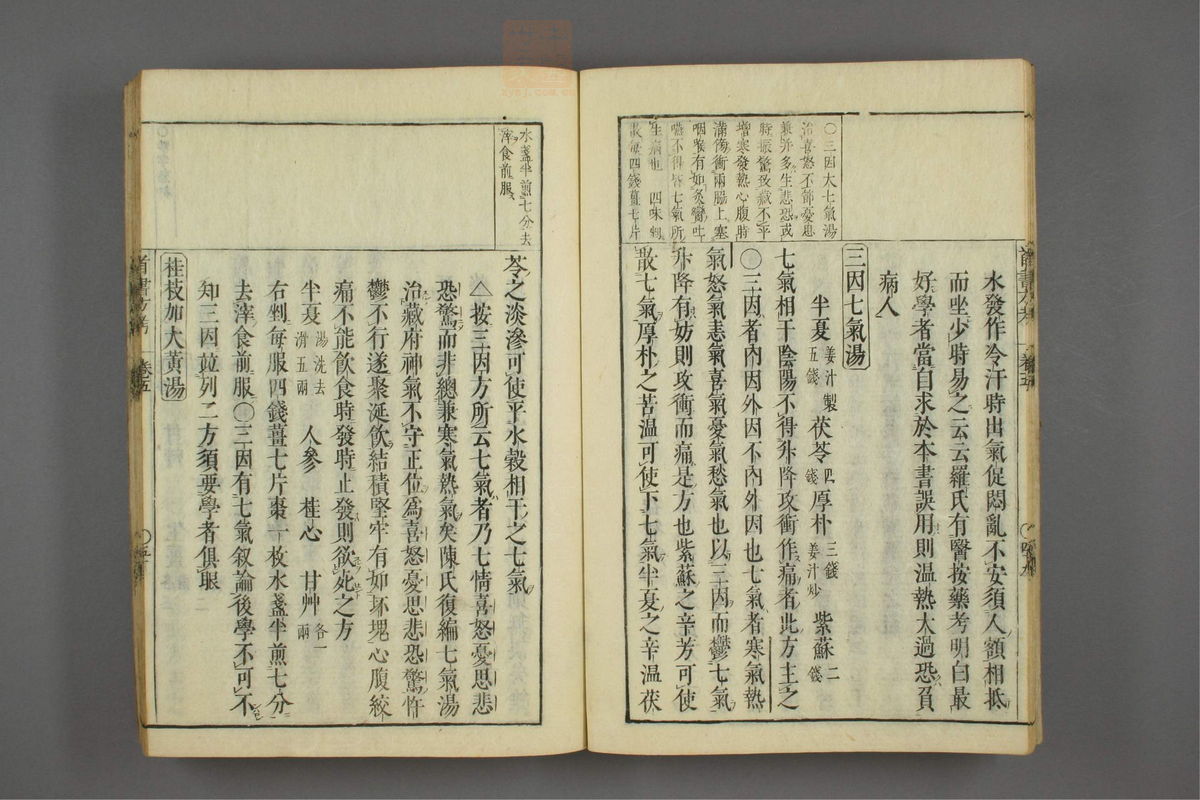 ○三因大七氣湯
治喜怒不節憂思
兼并多生悲恐或
時振驚致藏不平
增寒發熱心腹時
滿傍衝兩脇上塞
咽喉有如炙臠吐
嚥不得皆七氣所
生病也 四味剉
散每四錢薑七片
水發作冷汗時出氣促悶亂不安須人額相抵
而坐少時易之云云羅氏有醫按藥考明白最
好學者當自求於本書誤用則温熱太過恐負
病人
三因七氣湯
半夏 姜汁製五錢 茯苓 四錢 厚朴 三錢姜汁炒 紫蘇 二錢
七氣相干陰陽不得升降攻衝作痛者此方主之
○三因者內因外因不內外因也七氣者寒氣熱
氣怒氣恚氣喜氣憂氣愁氣也以三因而鬱七氣
升降有妨則攻衝而痛是方也紫蘇之辛芳可使
散七氣厚朴之苦温可使下七氣半夏之辛温茯
水盞半煎七分去
滓食前服
苓之淡滲可使平水穀相干之七氣
△按三因方所云七氣者乃七情喜怒憂思悲
恐驚而非總兼寒氣熱氣矣陳氏復編七氣湯
治藏府神氣不守正位爲喜怒憂思悲恐驚忤
鬱不行遂聚涎飲結積堅牢有如坏塊心腹絞
痛不能飲食時發時止發則欲死之方
半夏 湯洗去滑五兩 人參 桂心 甘艸 各一兩
右剉每服四錢薑七片棗一枚水盞半煎七分
去滓食前服○三因有七氣叙論後學不可不
知三因竝列二方須要學者俱眼
桂枝加大黃湯
卷五